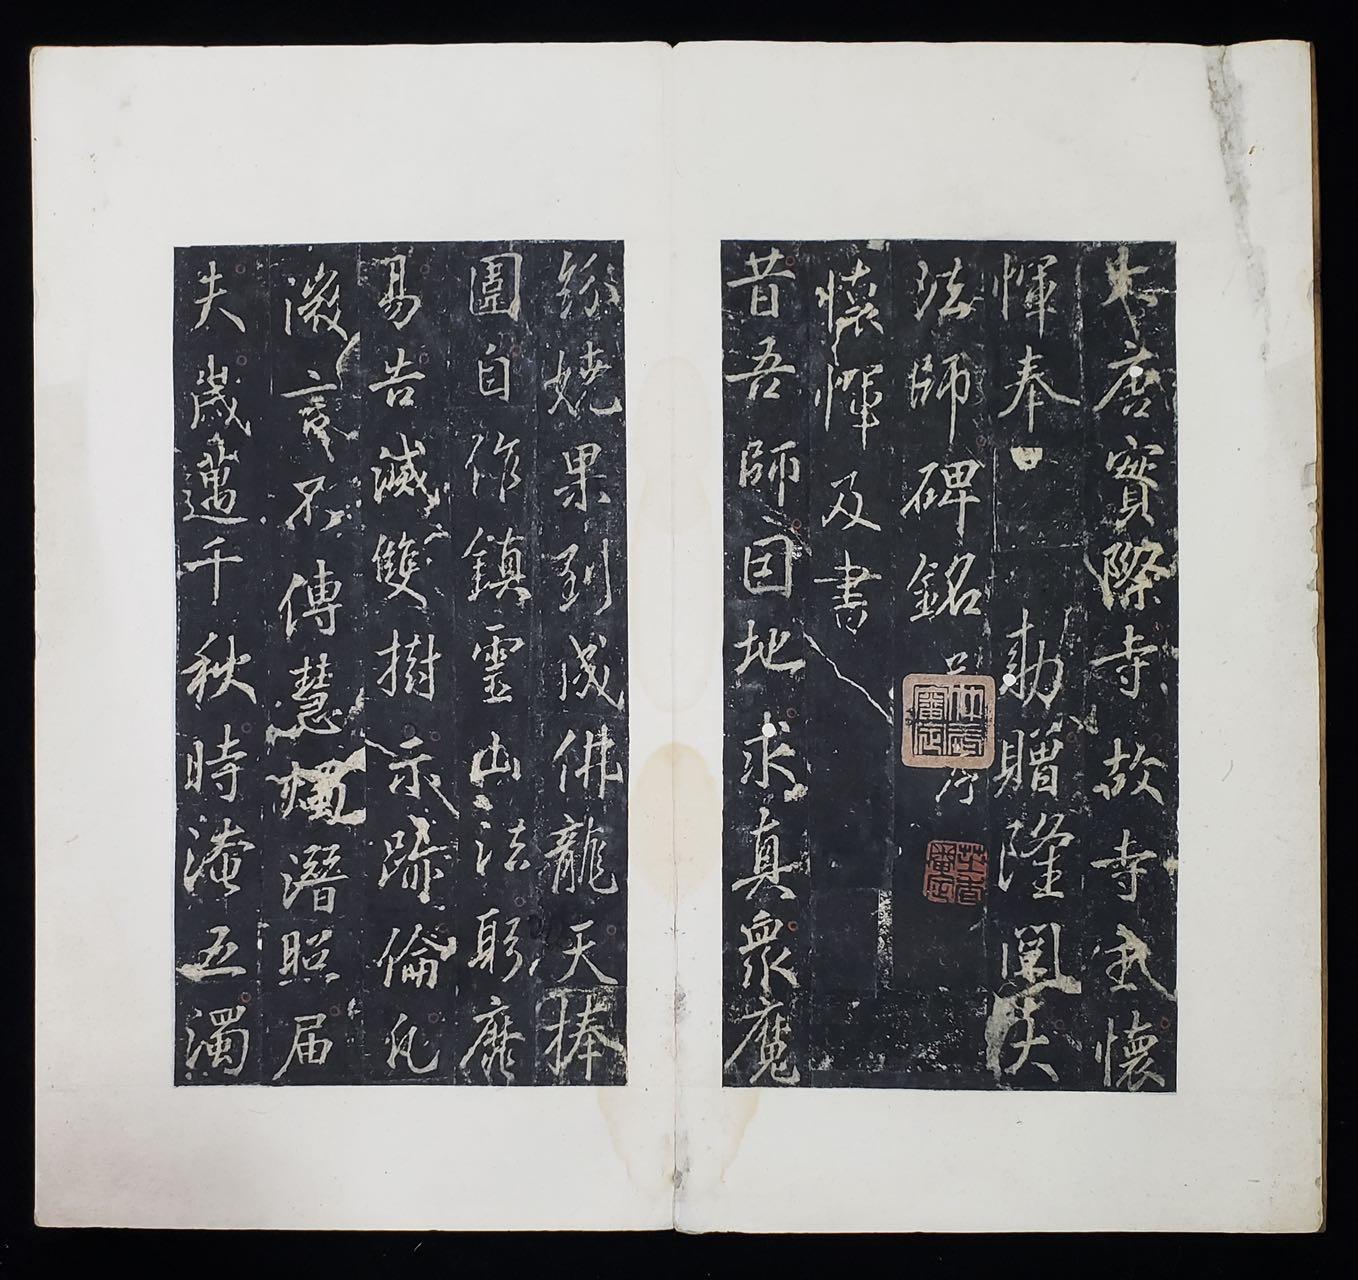 大唐實際寺故寺主懷
惲奉 勅贈隆闡大
法師碑銘并序
懷惲及書
昔吾師因地求真眾魔
紛嬈果到成佛龍天捧
圍自作鎮靈山法躬靡
易告滅雙樹示跡倫凡
微言不傳慧燭潛照屆
夫歲邁千秋時淹五濁